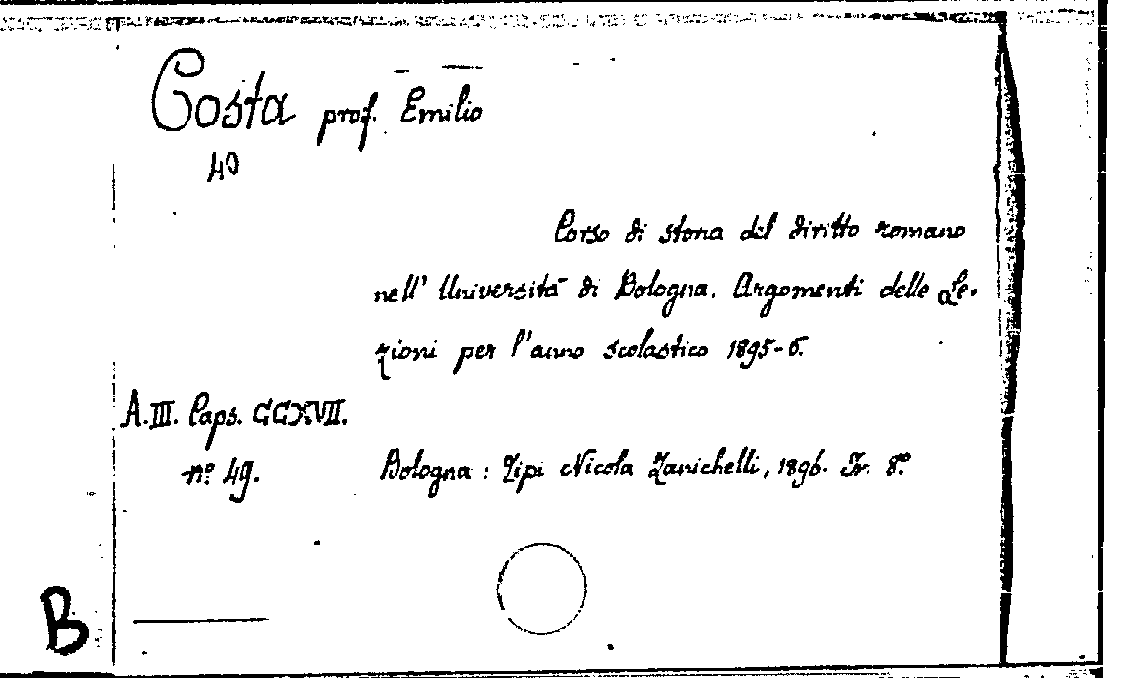 Costa prof. Emilio
40
Corso di storia del diritto romano
nell' Università di Bologna. Argomenti delle Le-
zioni per l'anno scolastico 1895-6.
A.III. Caps. CCXVII.
nº 49.
Bologna: Tipi Nicola Zanichelli, 1896. In 8º.
B